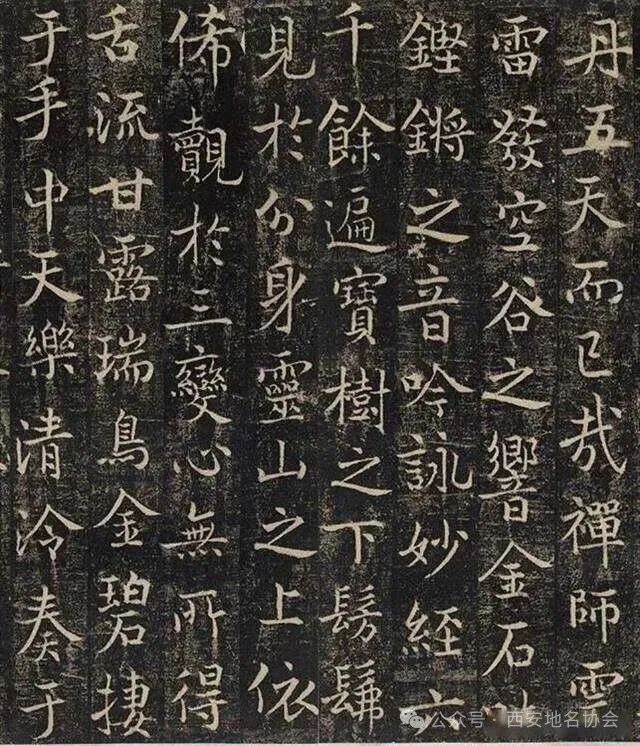 丹五天而已哉禪師雷
雷發空谷之響金石
鏗鏘之音吟詠妙經六
千餘遍寶樹之下髣髴
見於分身靈山之上依
俙覿於三變心無所得
舌流甘露瑞鳥金碧捿
于手中天樂清泠奏于
公众号·西安地名协会